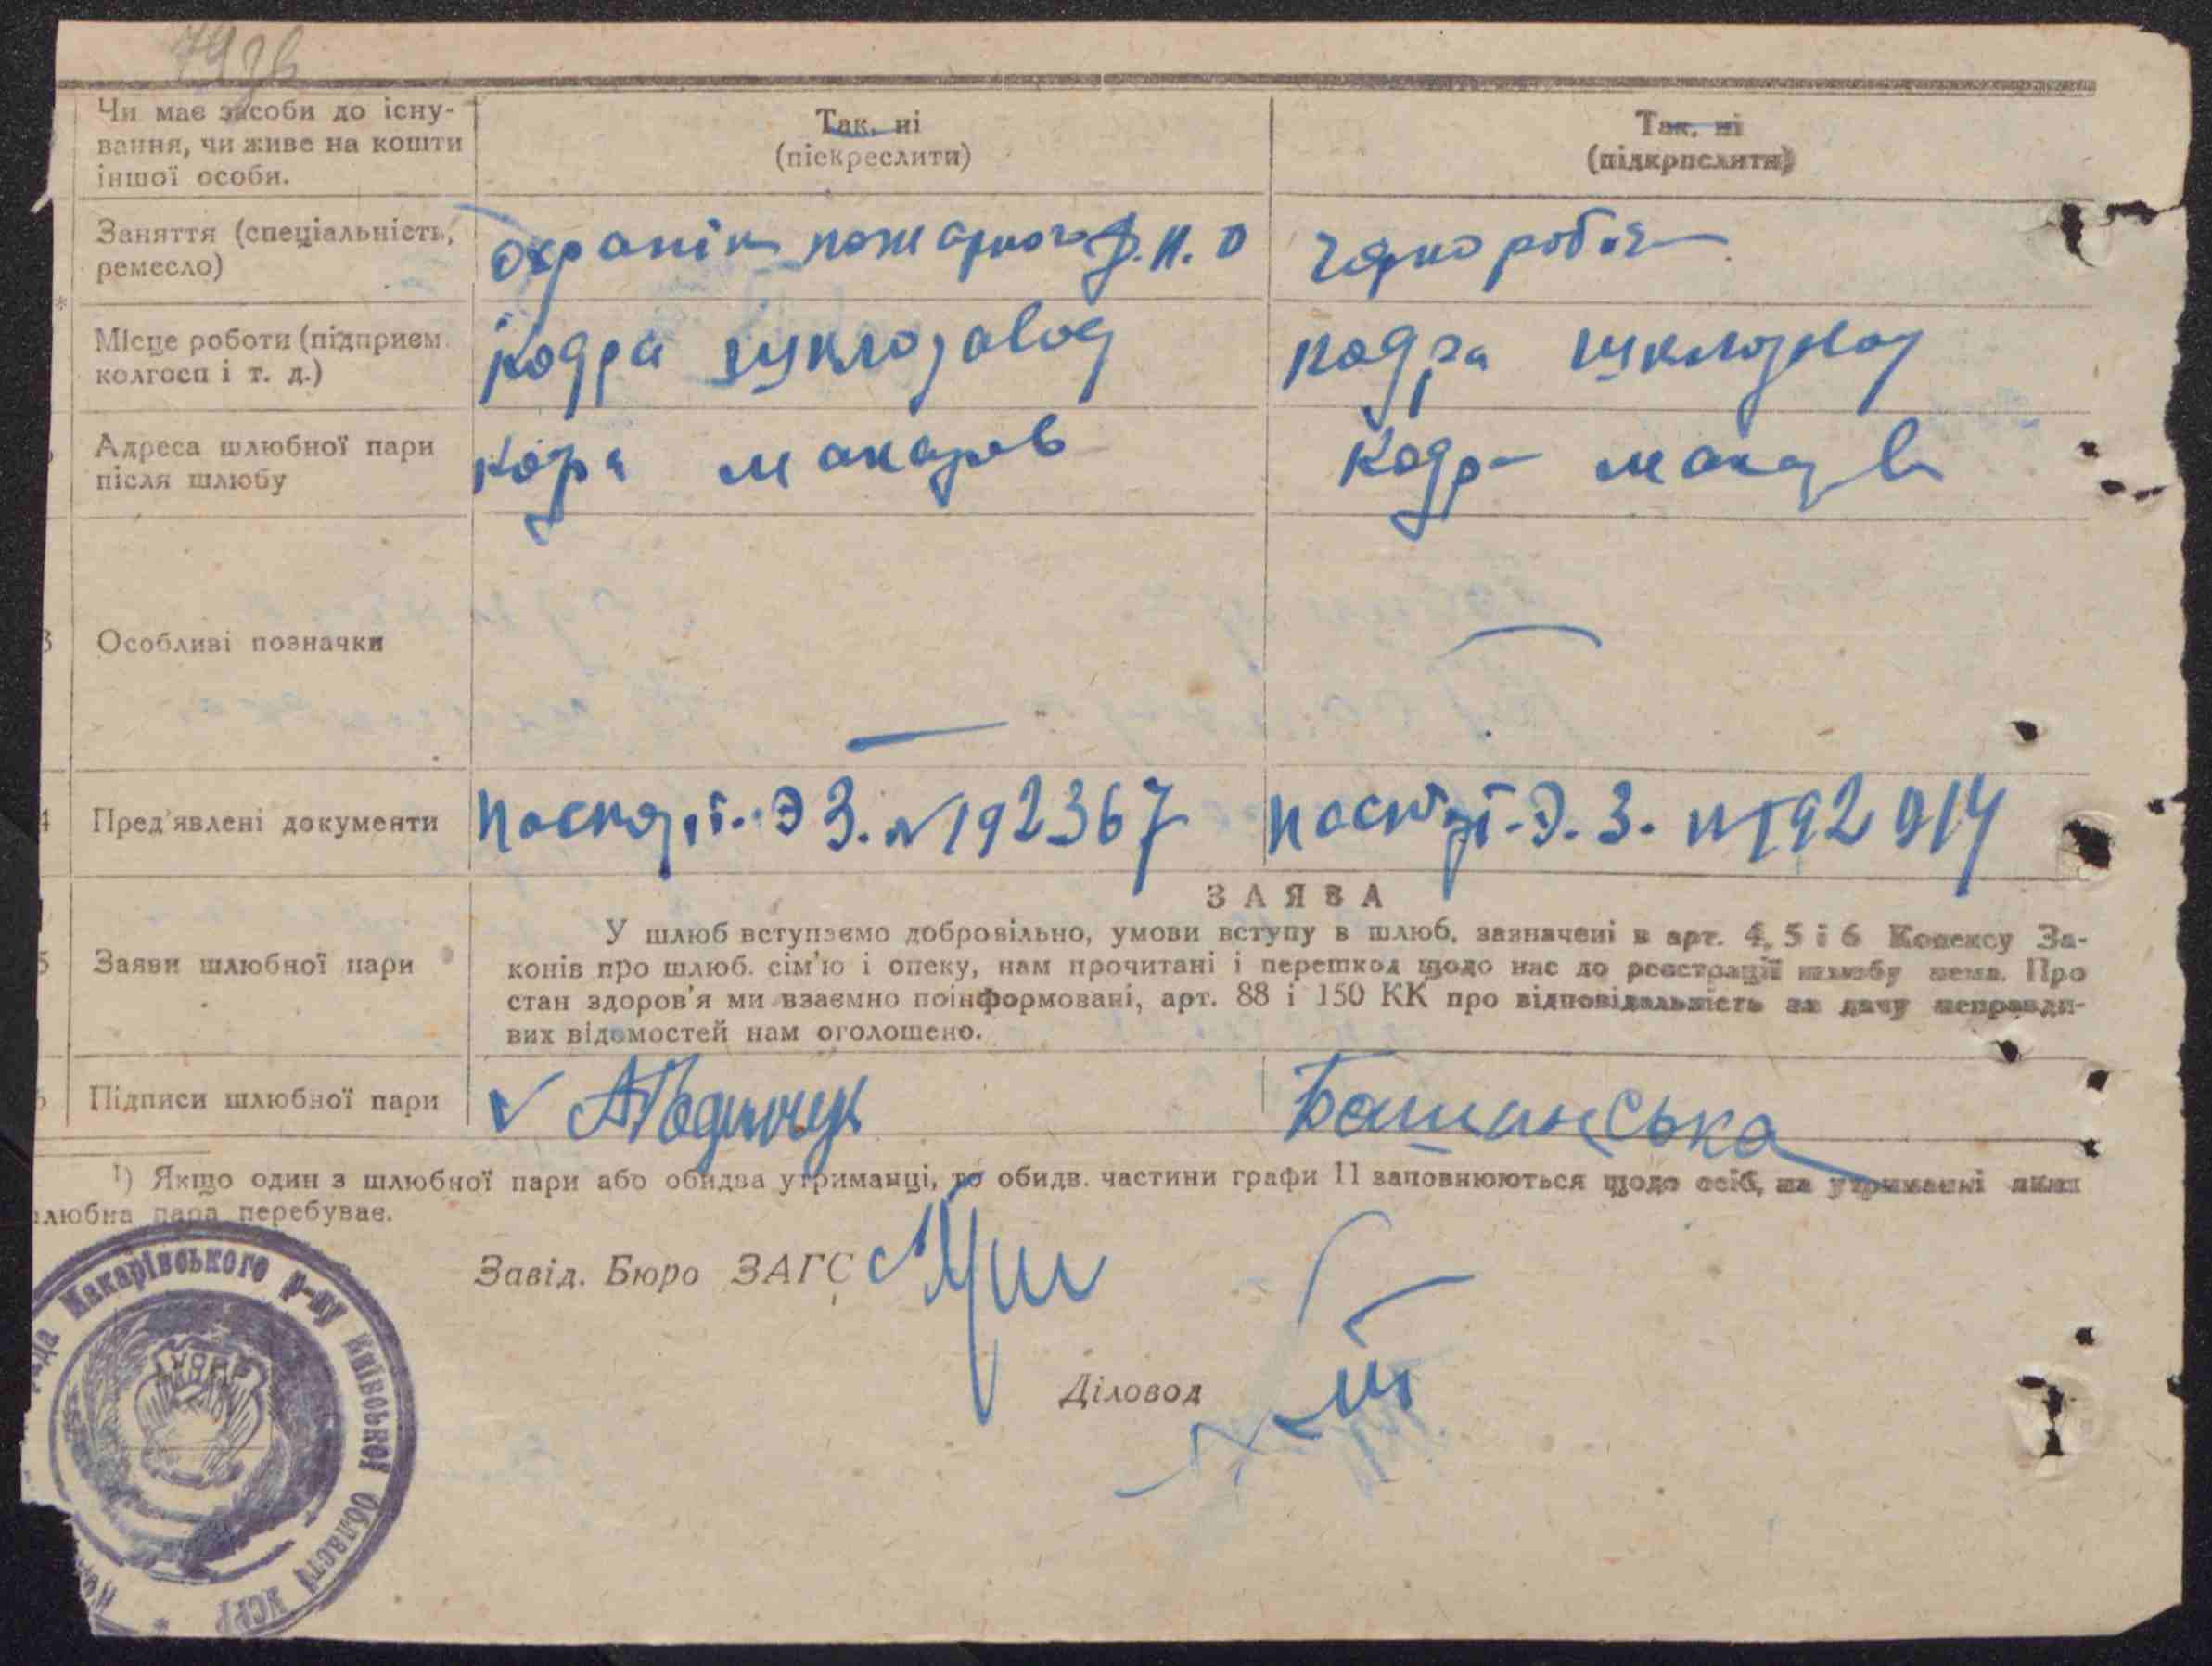 79зв
Чи має засоби до існу-
вання, чи живе на кошти
іншої особи.
Так, ні
(піскреслити)
Так, ні
(підкрпслити)
Заняття (спеціальність,
ремесло)
охранік пожарного
чорнороб
Місце роботи (підприєм.
колгосп і т. д.)
кодра шуклозавод
кодра шуклозавод
Адреса шлюбної пари
після шлюбу
кодра макарів
кодра
3
Особливі позначки
4
Пред'явлені документи
паспорт. ЭЗ. №192367
паспорт. Э.З. №192914
ЗАЯВА
5
Заяви шлюбної пари
У шлюб вступаємо добровільно, умови вступу в шлюб, зазначені в арт. 4, 5 і 6 Кодексу За-
конів про шлюб. сім'ю і опеку, нам прочитані і перешкод щодо нас до реєстрації шлюбу нема. Про
стан здоров'я ми взаємно поінформовані, арт. 88 і 150 КК про відповідальність за дачу неправди-
вих відомостей нам оголошено.
6
Підписи шлюбної пари
Башинська
1) Якщо один з шлюбної пари або обидва утриманці, то обидв. частини графи 11 заповнюються щодо осіб, на утриманні яких
шлюбна пара перебуває.
Завід. Бюро ЗАГС
Діловод
Макарівського р-ну Київської області УСРР
УСРР